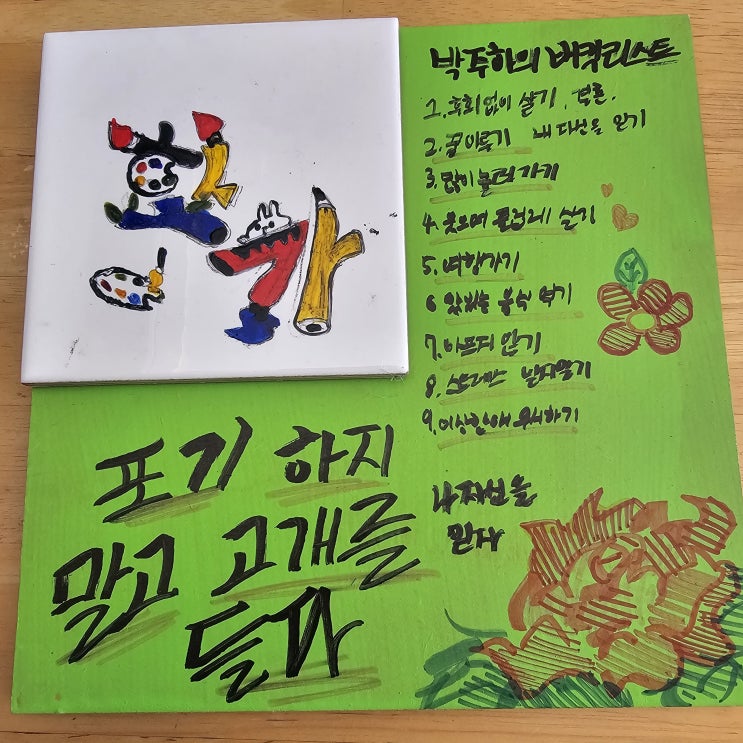 화가
박주하의 버킷리스트
1. 후회없이 살기.
2. 꿈이루기 내 자신을 믿기
3. 많이 놀러가기
4. 웃으며 즐겁게 살기
5. 여행가기
6 맛있는 음식 먹기
7. 아프지 않기
8. 스트레스
9. 이상한애 무시하기
나 자신을
믿자
포기 하지
말고 고개를
들자